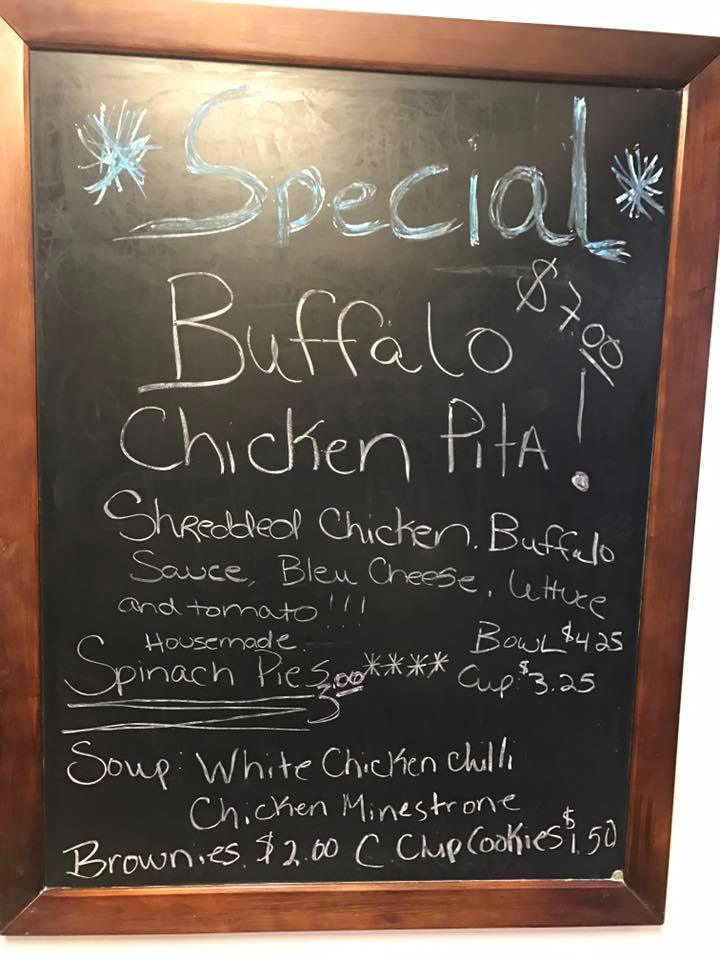 *Special*
$7.00!
Buffalo
Chicken Pita
Shredded Chicken. Buffalo
Sauce, Bleu Cheese, lettuce
and tomato!!!
Housemade
Spinach Pies 3.00****
Bowl $4.25
Cup: $3.25
Soup: White Chicken Chilli
Chicken Minestrone
Brownies. $2.00 C. Chip Cookies $1.50